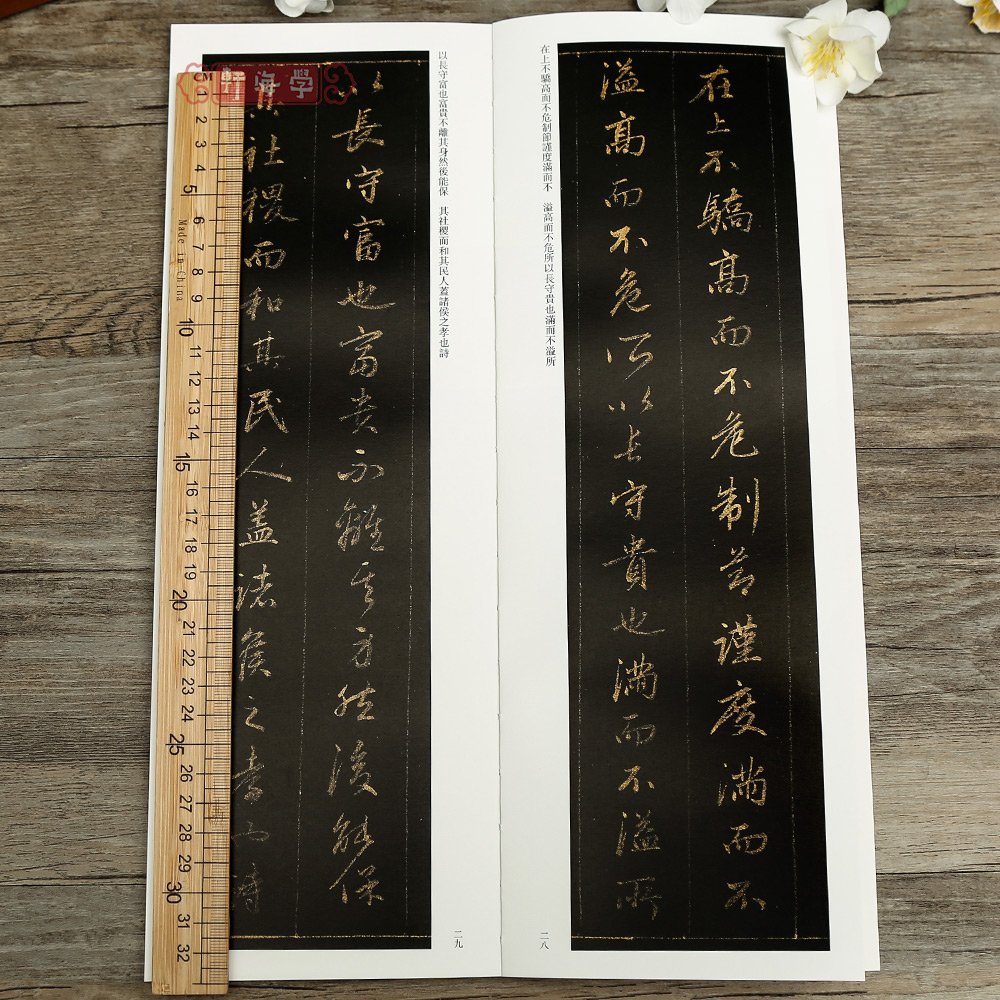 在上不驕高而不危制節謹度滿而不
溢高而不危所以長守貴也滿而不溢所
在上不驕高而不危制節謹度滿而不　溢高而不危所以長守貴也滿而不溢所
二八
以長守富也富貴不離其身然後能保
其社稷而和其民人蓋諸侯之孝也詩
以長守富也富貴不離其身然後能保　其社稷而和其民人蓋諸侯之孝也詩
二九
CM 1 2 3 4 5 6 7 8 9 10 11 12 13 14 15 16 17 18 19 20 21 22 23 24 25 26 27 28 29 30 31 32
Made in China
軒海學